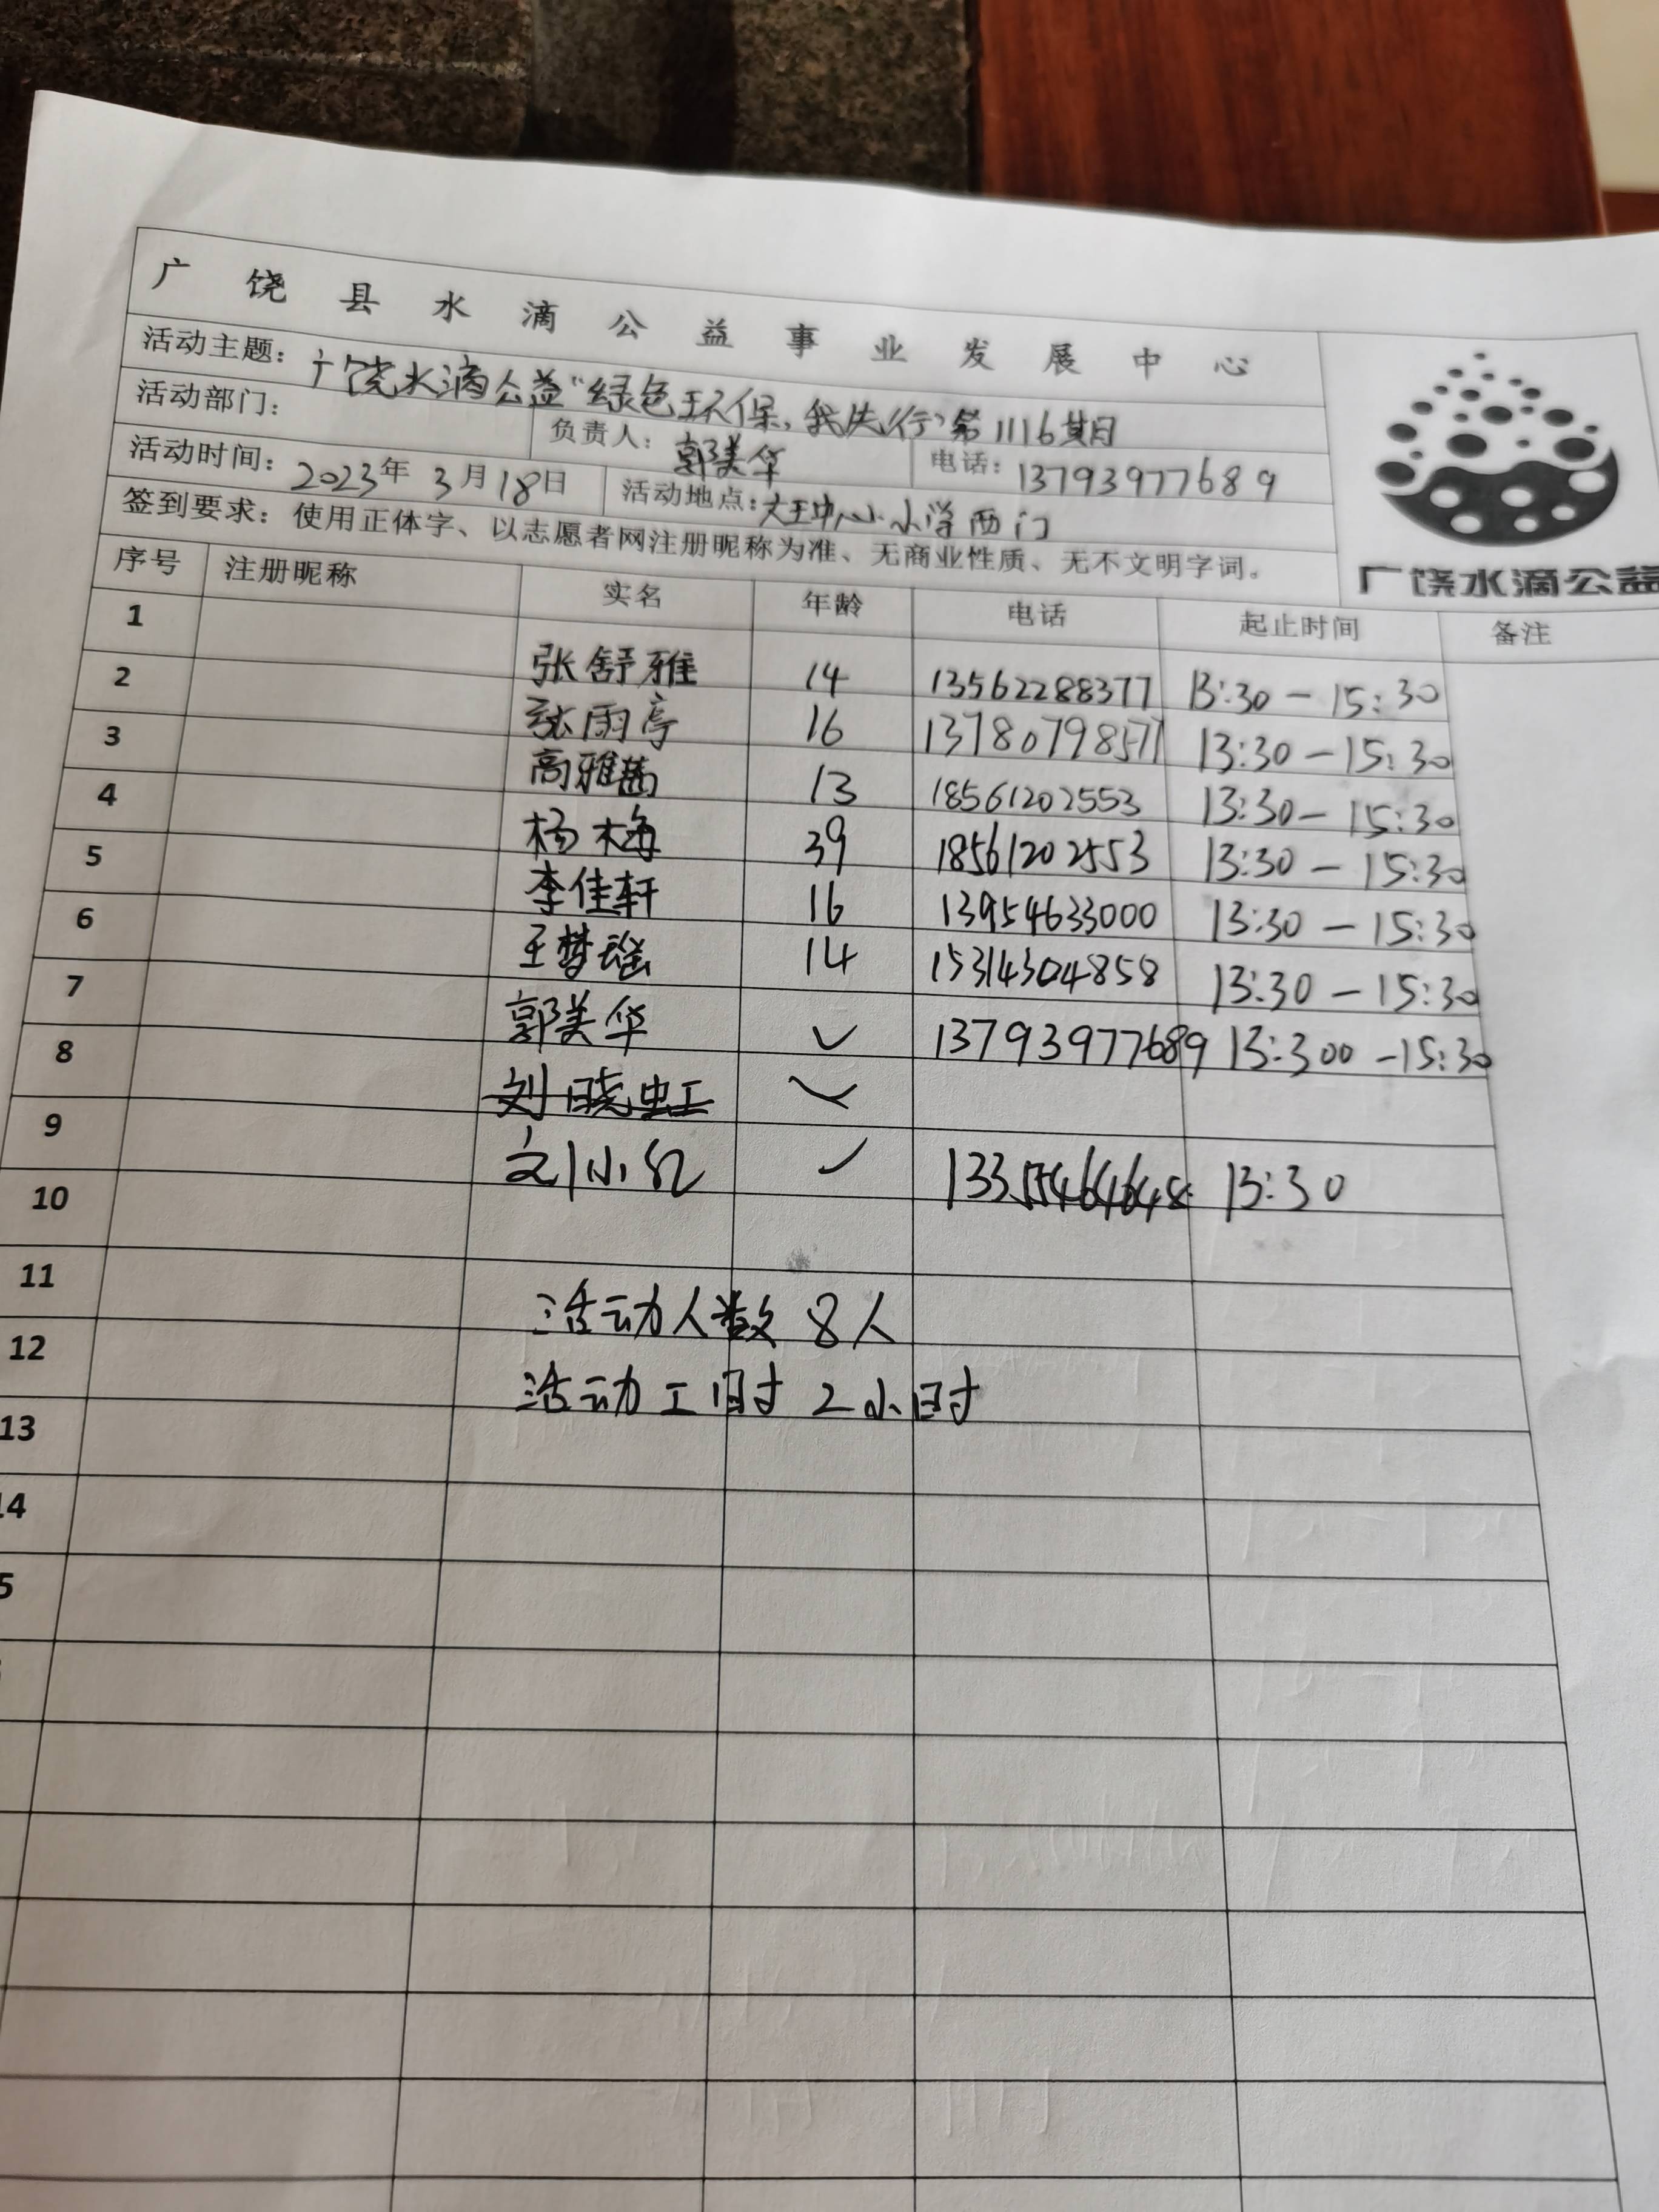 广饶县水滴公益事业发展中心
活动主题：广饶水滴公益"绿色环保,我先行"第1116期
活动部门： 负责人：郭美华 电话：13793977689
活动时间：2023年3月18日 活动地点：大王中心小学西门
签到要求：使用正体字、以志愿者网注册昵称为准、无商业性质、无不文明字词。
广饶水滴公益
序号 注册昵称 实名 年龄 电话 起止时间 备注
1 张舒雅 14 13562288377 13:30-15:30
2 张雨亭 16 13780798571 13:30-15:30
3 高雅茜 13 18561202553 13:30-15:30
4 杨梅 39 18561202553 13:30-15:30
5 李佳轩 16 13954633000 13:30-15:30
6 王梦瑶 14 15314304858 13:30-15:30
7 郭美华 ✓ 13793977689 13:300-15:30
8 刘晓虹 ✓
9 刘小红 ✓ 13:30
10
11 活动人数8人
12 活动工时2小时
13
14
5